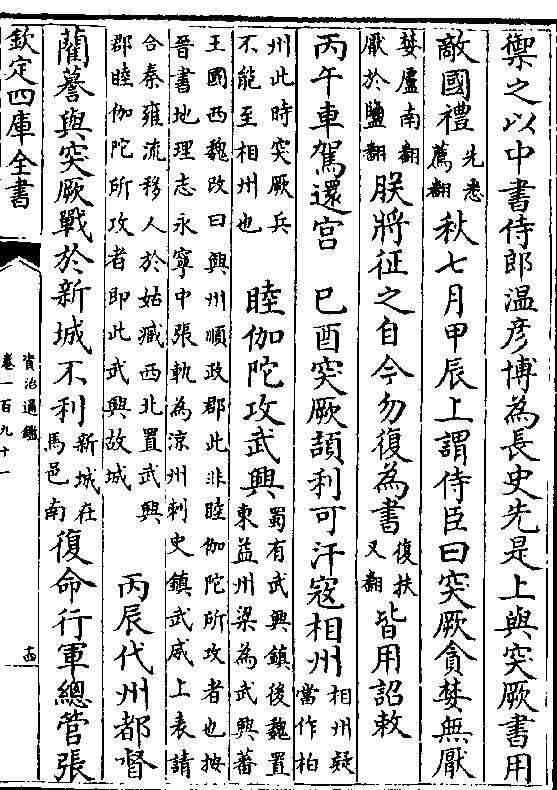 禦之以中書侍郎温彦博為長史先是上與突厥書用
敵國禮先悉薦翻秋七月甲辰上謂侍臣曰突厥貪婪無厭
婪盧南翻厭於鹽翻朕將征之自今勿復為書復扶又翻皆用詔敕
丙午車駕還宫 已酉突厥頡利可汗寇相州相州疑當作柏
州此時突厥兵不能至相州也 睦伽陀攻武興蜀有武興鎮後魏置東益州梁為武興蕃
王國西魏改曰興州順政郡此非睦伽陀所攻者也按晉書地理志永寧中張軌為涼州刺史鎮武威上表請
合秦雍流移人於姑臧西北置武興郡睦伽陀所攻者即此武興故城 丙辰代州都督
藺謩與突厥戰於新城不利新城在馬邑南復命行軍總管張
欽定四庫全書
資治通鑑
卷一百九十一
十四